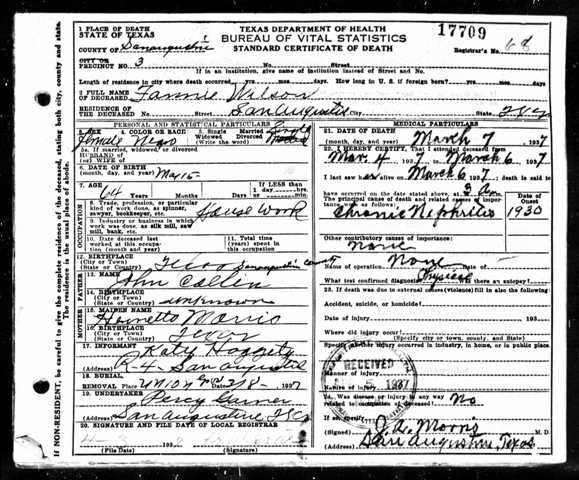 1 PLACE OF DEATH
STATE OF TEXAS
TEXAS DEPARTMENT OF HEALTH
BUREAU OF VITAL STATISTICS
STANDARD CERTIFICATE OF DEATH
17709
COUNTY OF San Augustine
Registrar's No. 68
PRECINCT NO. 3 No. Street
If in an institution, give name of institution instead of Street and No.
Length of residence in city where death occurred yrs. mos. days. How long in U. S. if foreign born? yrs. mos. days
2 FULL NAME
OF DECEASED Fannie Wilson
RESIDENCE OF
THE DECEASED Street and No. City San Augustine State Tex
PERSONAL AND STATISTICAL PARTICULARS
3. SEX 4. COLOR OR RACE 5. Single Married
Widowed Divorced
(Write the word)
Female Negro
5a. If married, widowed or divorced
HUSBAND of
(or) WIFE of
6. DATE OF BIRTH
(month, day and year) Mar 15
7. AGE 64 Years Months Days If LESS than
1 day, hrs. min.
OCCUPATION
8. Trade, profession, or particular
kind of work done, as spinner,
sawyer, bookkeeper, etc. House Work
9. Industry or business in which
work was done, as silk mill, saw
mill, bank, etc.
10. Date deceased last
worked at this occupation
(month and year)
11. Total time
(years) spent in
this occupation
12. BIRTHPLACE
(City or Town)
(State or Country) Texas San Augustine County
FATHER
13. NAME John Cullen
14. BIRTHPLACE
(City or Town)
(State or Country) unknown
MOTHER
15. MAIDEN NAME Morris
16. BIRTHPLACE
(City or Town)
(State or Country) Texas
17. INFORMANT Katy
(Address) R-4- San Augustine
18. BURIAL
REMOVAL Place Union 1937
19. UNDERTAKER Percy Garner
(Address) San Augustine, Tex
20. SIGNATURE AND FILE DATE OF LOCAL REGISTRAR
(File Date) (Signature)
MEDICAL PARTICULARS
21. DATE OF DEATH
(month, day, year) March 7 1937
22. I HEREBY CERTIFY, That I attended deceased from
Mar. 4 1937 to March 6, 1937
I last saw her alive on March 6 1937 death is said to
have occurred on the date stated above, at 3 Am.
The principal cause of death and related causes of importance
were as follows: Date of Onset
Chronic Nephritis 1930
Other contributory causes of importance:
None
Name of operation None
What test confirmed diagnosis? Was there an autopsy?
23. If death was due to external causes (violence) fill in also the following
Accident, suicide, or homicide?
Date of injury 193
Where did injury occur?
(Specify city or town, county, and State)
Specify whether injury occurred in industry, in home, or in public place
Manner of injury
Nature of injury
24. Was disease or injury in any way
related to occupation of deceased? No
RECEIVED
5 1937
(Signed) Morris M. D.
(Address) San Augustine, Texas
If NON-RESIDENT, be careful to give the complete residence of the deceased, stating both city, county and state.
The residence is the usual place of abode.